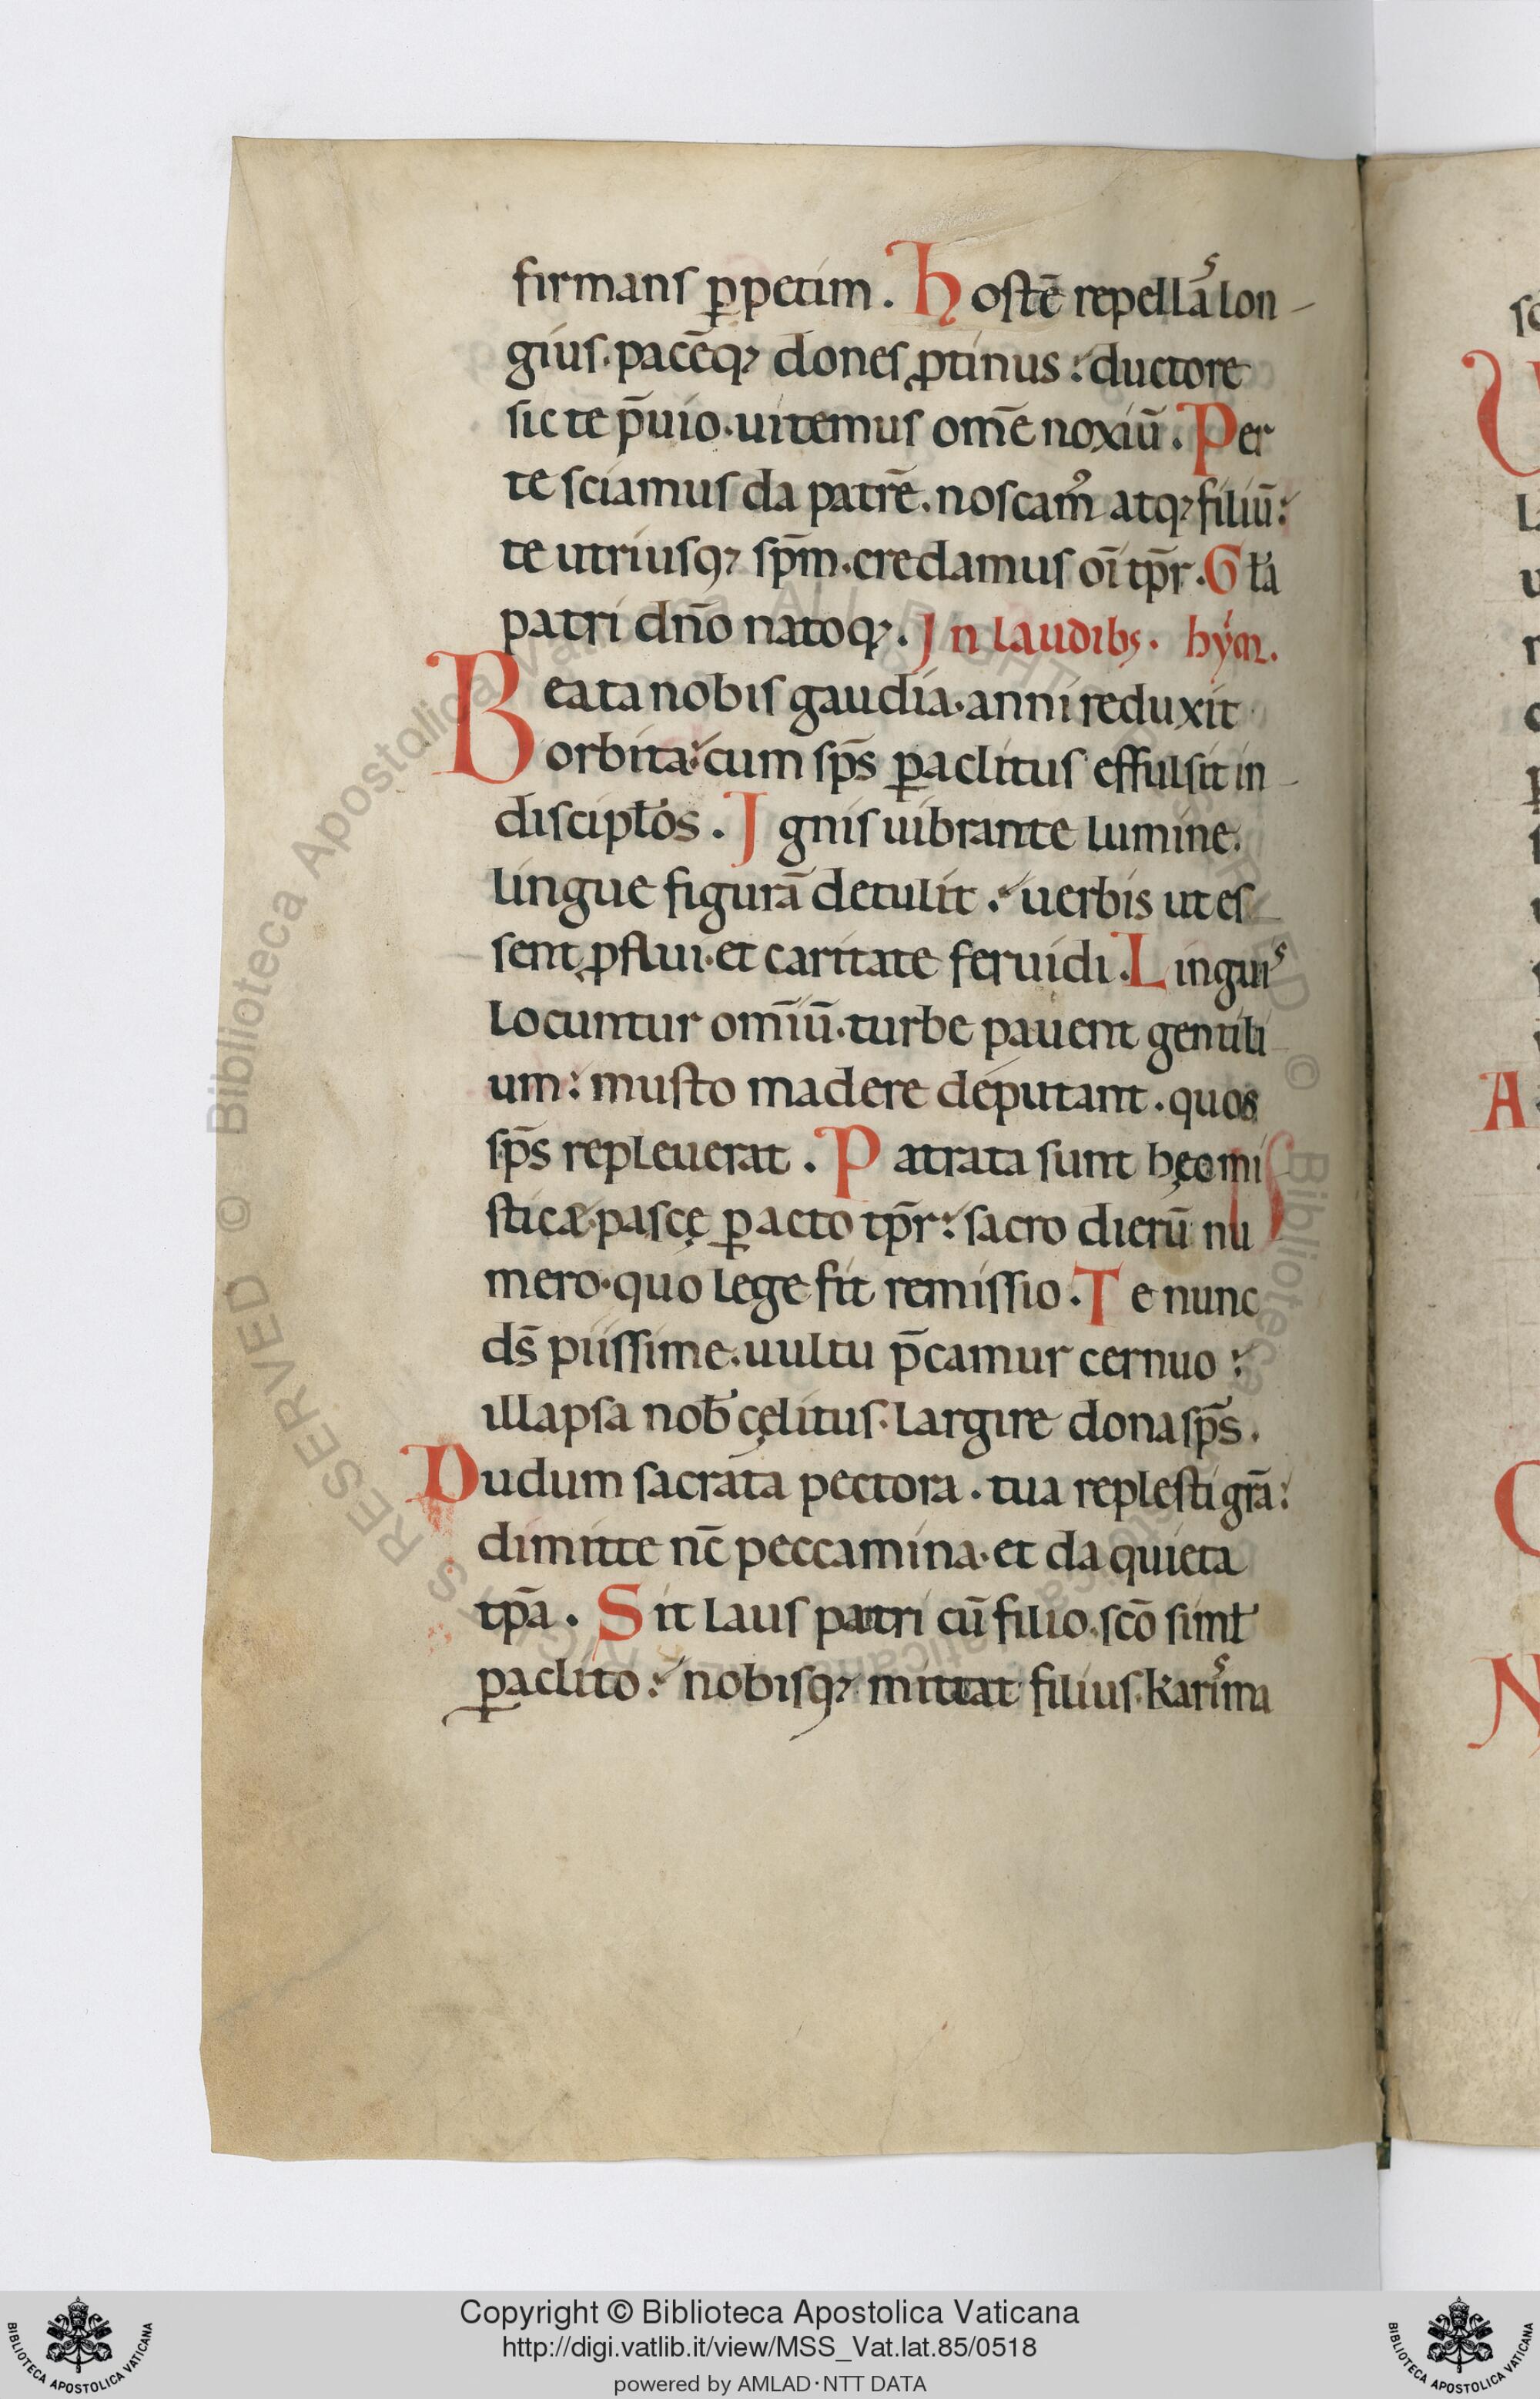 firmans ꝑpetim. Hostē repellas̄ lon-
gius. pacēq; dones ꝓtinus: ductore
sic te p̄uio. uitemus om̄e noxiū. Per
te sciamus da patrē. noscam᷒ atq; filiū:
te utriusq; sp̄m. credamus oī tp̄r. Gl̄a
patri dn̄o natoq;. In laudibꝫ. hẏm.
Beata nobis gaudia. anni reduxit
orbita: cum sp̄s ꝑaclitus effulsit in-
discipl̄os. Ignis uibrante lumine.
lingue figurā detulit: uerbis ut es
sent ꝓflui. et caritate feruidi. Linguis
locuntur om̄iū. turbe pauent gentili
um: musto madere deputant. quos
sp̄s repleuerat. Patrata sunt hęc mi
sticæ. pascę ꝑacto tp̄r: sacro dierū nu
mero. quo lege fit remissio. Te nunc
ds̄ piissime. uultu p̄camur cernuo:
illapsa nob̄ cęlitus. largire dona sp̄s.
Dudum sacrata pectora. tua replesti gr̄a:
dimitte nc̄ peccamina. et da quieta
tp̄a. Sit laus patri cū filio. scō siml̄
ꝑaclito: nobisq; mittat filius. karisma
Copyright © Biblioteca Apostolica Vaticana
http://digi.vatlib.it/view/MSS_Vat.lat.85/0518
powered by AMLAD·NTT DATA
BIBLIOTECA APOSTOLICA VATICANA
BIBLIOTECA APOSTOLICA VATICANA